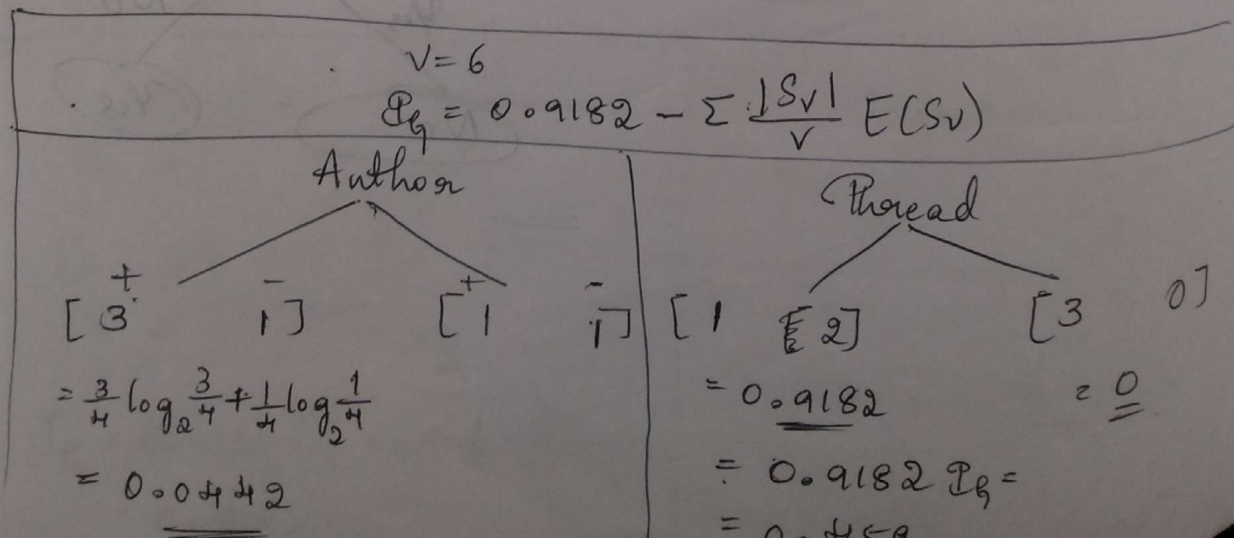 V=6
Ig = 0.9182 - Σ |Sv|/v E(Sv)
Author
[3+ 1-] [1+ 1-]
= 3/4 log₂ 3/4 + 1/4 log₂ 1/4
= 0.0442
Thread
[1 2] [3 0]
= 0.9182 = 0
= 0.9182 Ig =